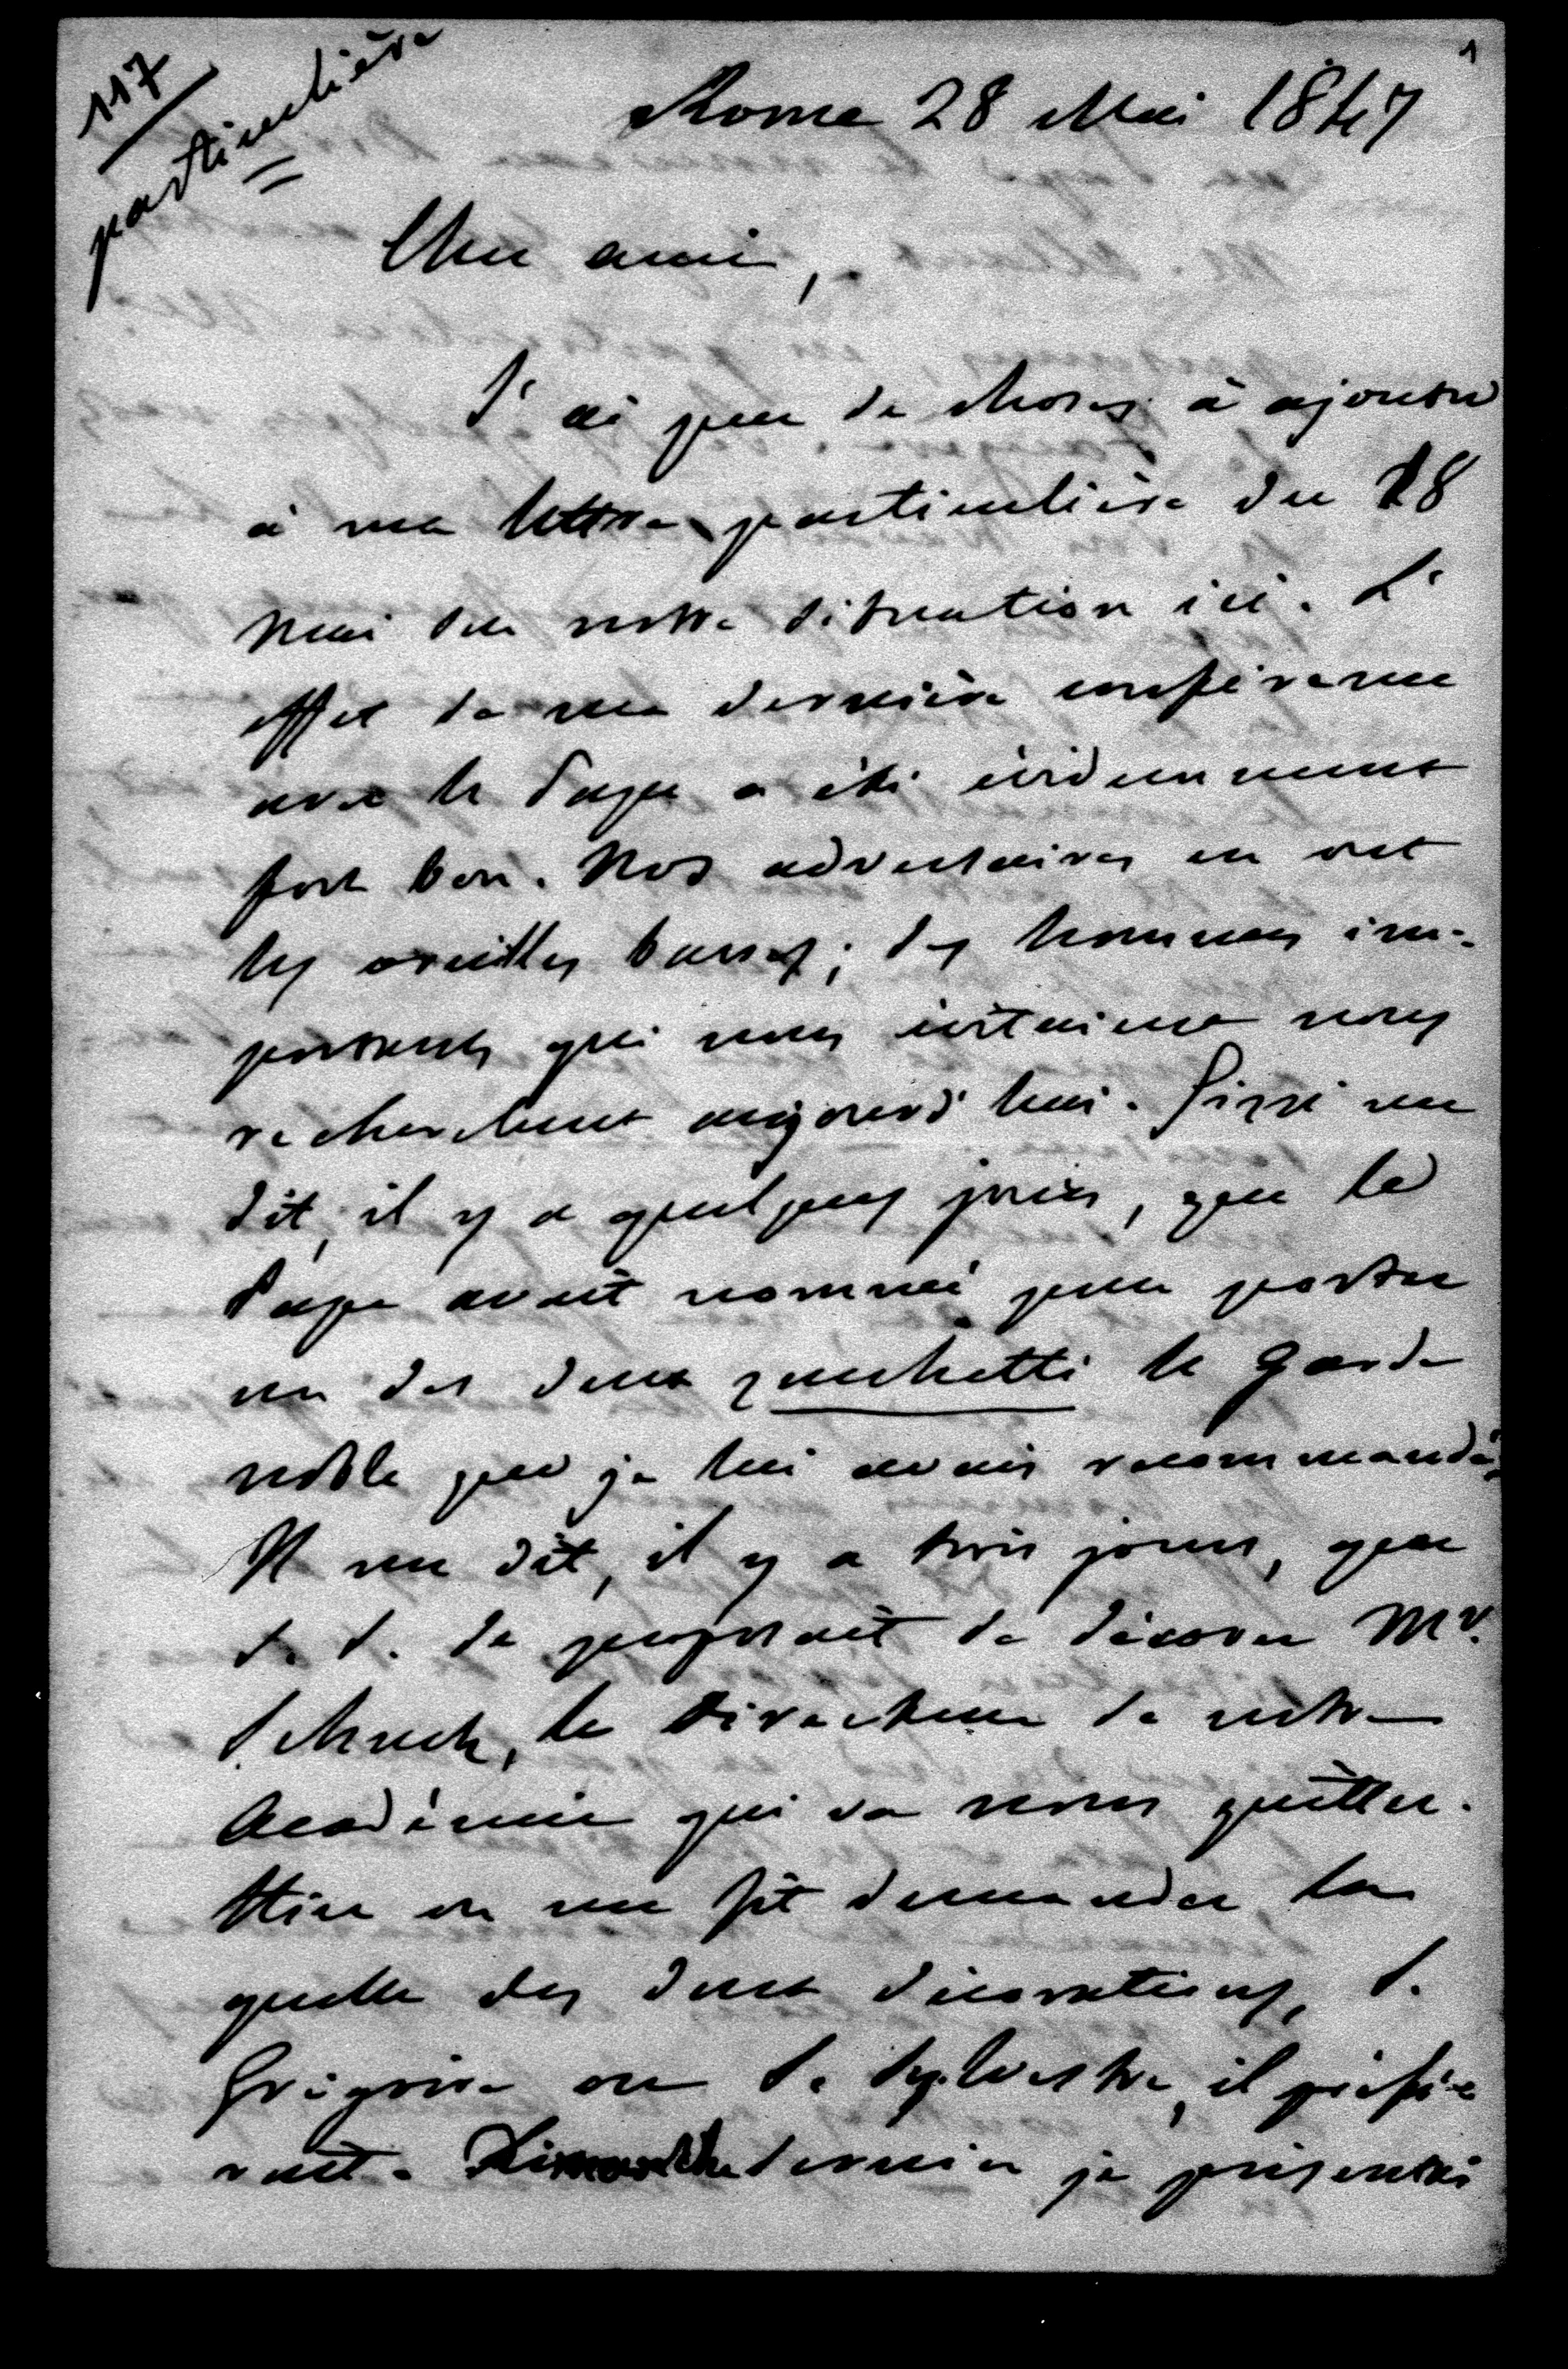 1
117
particulière
Rome 28 Mai 1847
Cher ami,
J'ai peu de choses à ajouter
à ma lettre particulière du 18
mai sur notre situation ici. L'
effet de ma dernière conférence
avec le Pape a été évidemment
fort bon. Nos adversaires en ont
les oreilles basses; des hommes im-
portants qui nous évitaient nous
recherchent aujourd'hui. Gizzi me
dit, il y a quelques jours, que le
Pape avait nommé pour porter
un des deux zuchetti le garde
noble que je lui avais recommandé.
Il me dit, il y a trois jours, que
S. S. se proposait de décorer Mr.
Schnetz, le Directeur de notre
Académie qui va nous quitter.
Hier on me fit demander la
quelle des deux décorations, S.
Grégoire ou S. Sylvestre, il préfé
rait. Dimanche dernier je présentai